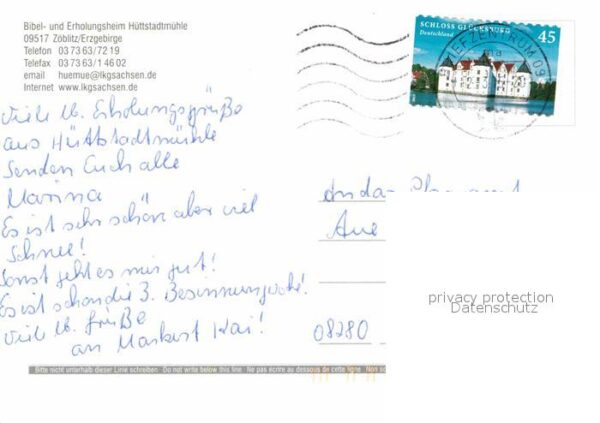 Bibel- und Erholungsheim Hüttstadtmühle
09517 Zöblitz/Erzgebirge
Telefon 03 73 63/72 19
Telefax 03 73 63/1 46 02
email huemue@lkgsachsen.de
Internet www.lkgsachsen.de
SCHLOSS GLÜCKSBURG
Deutschland
45
BRIEFZENTRUM 09
Viele lb. Erholungsgrüße
aus Hüttstadtmühle
senden Euch alle
Marina
Es ist sehr schön aber viel
Schnee!
Sonst geht es mir gut!
Es ist schon die 3. Besinnungwoche!
Viele lb. Grüße
an Markus + Kai!
Aue
08280
privacy protection
Datenschutz
Bitte nicht unterhalb dieser Linie schreiben · Do not write below this line · Ne pas écrire au dessous de cette ligne · Non sc